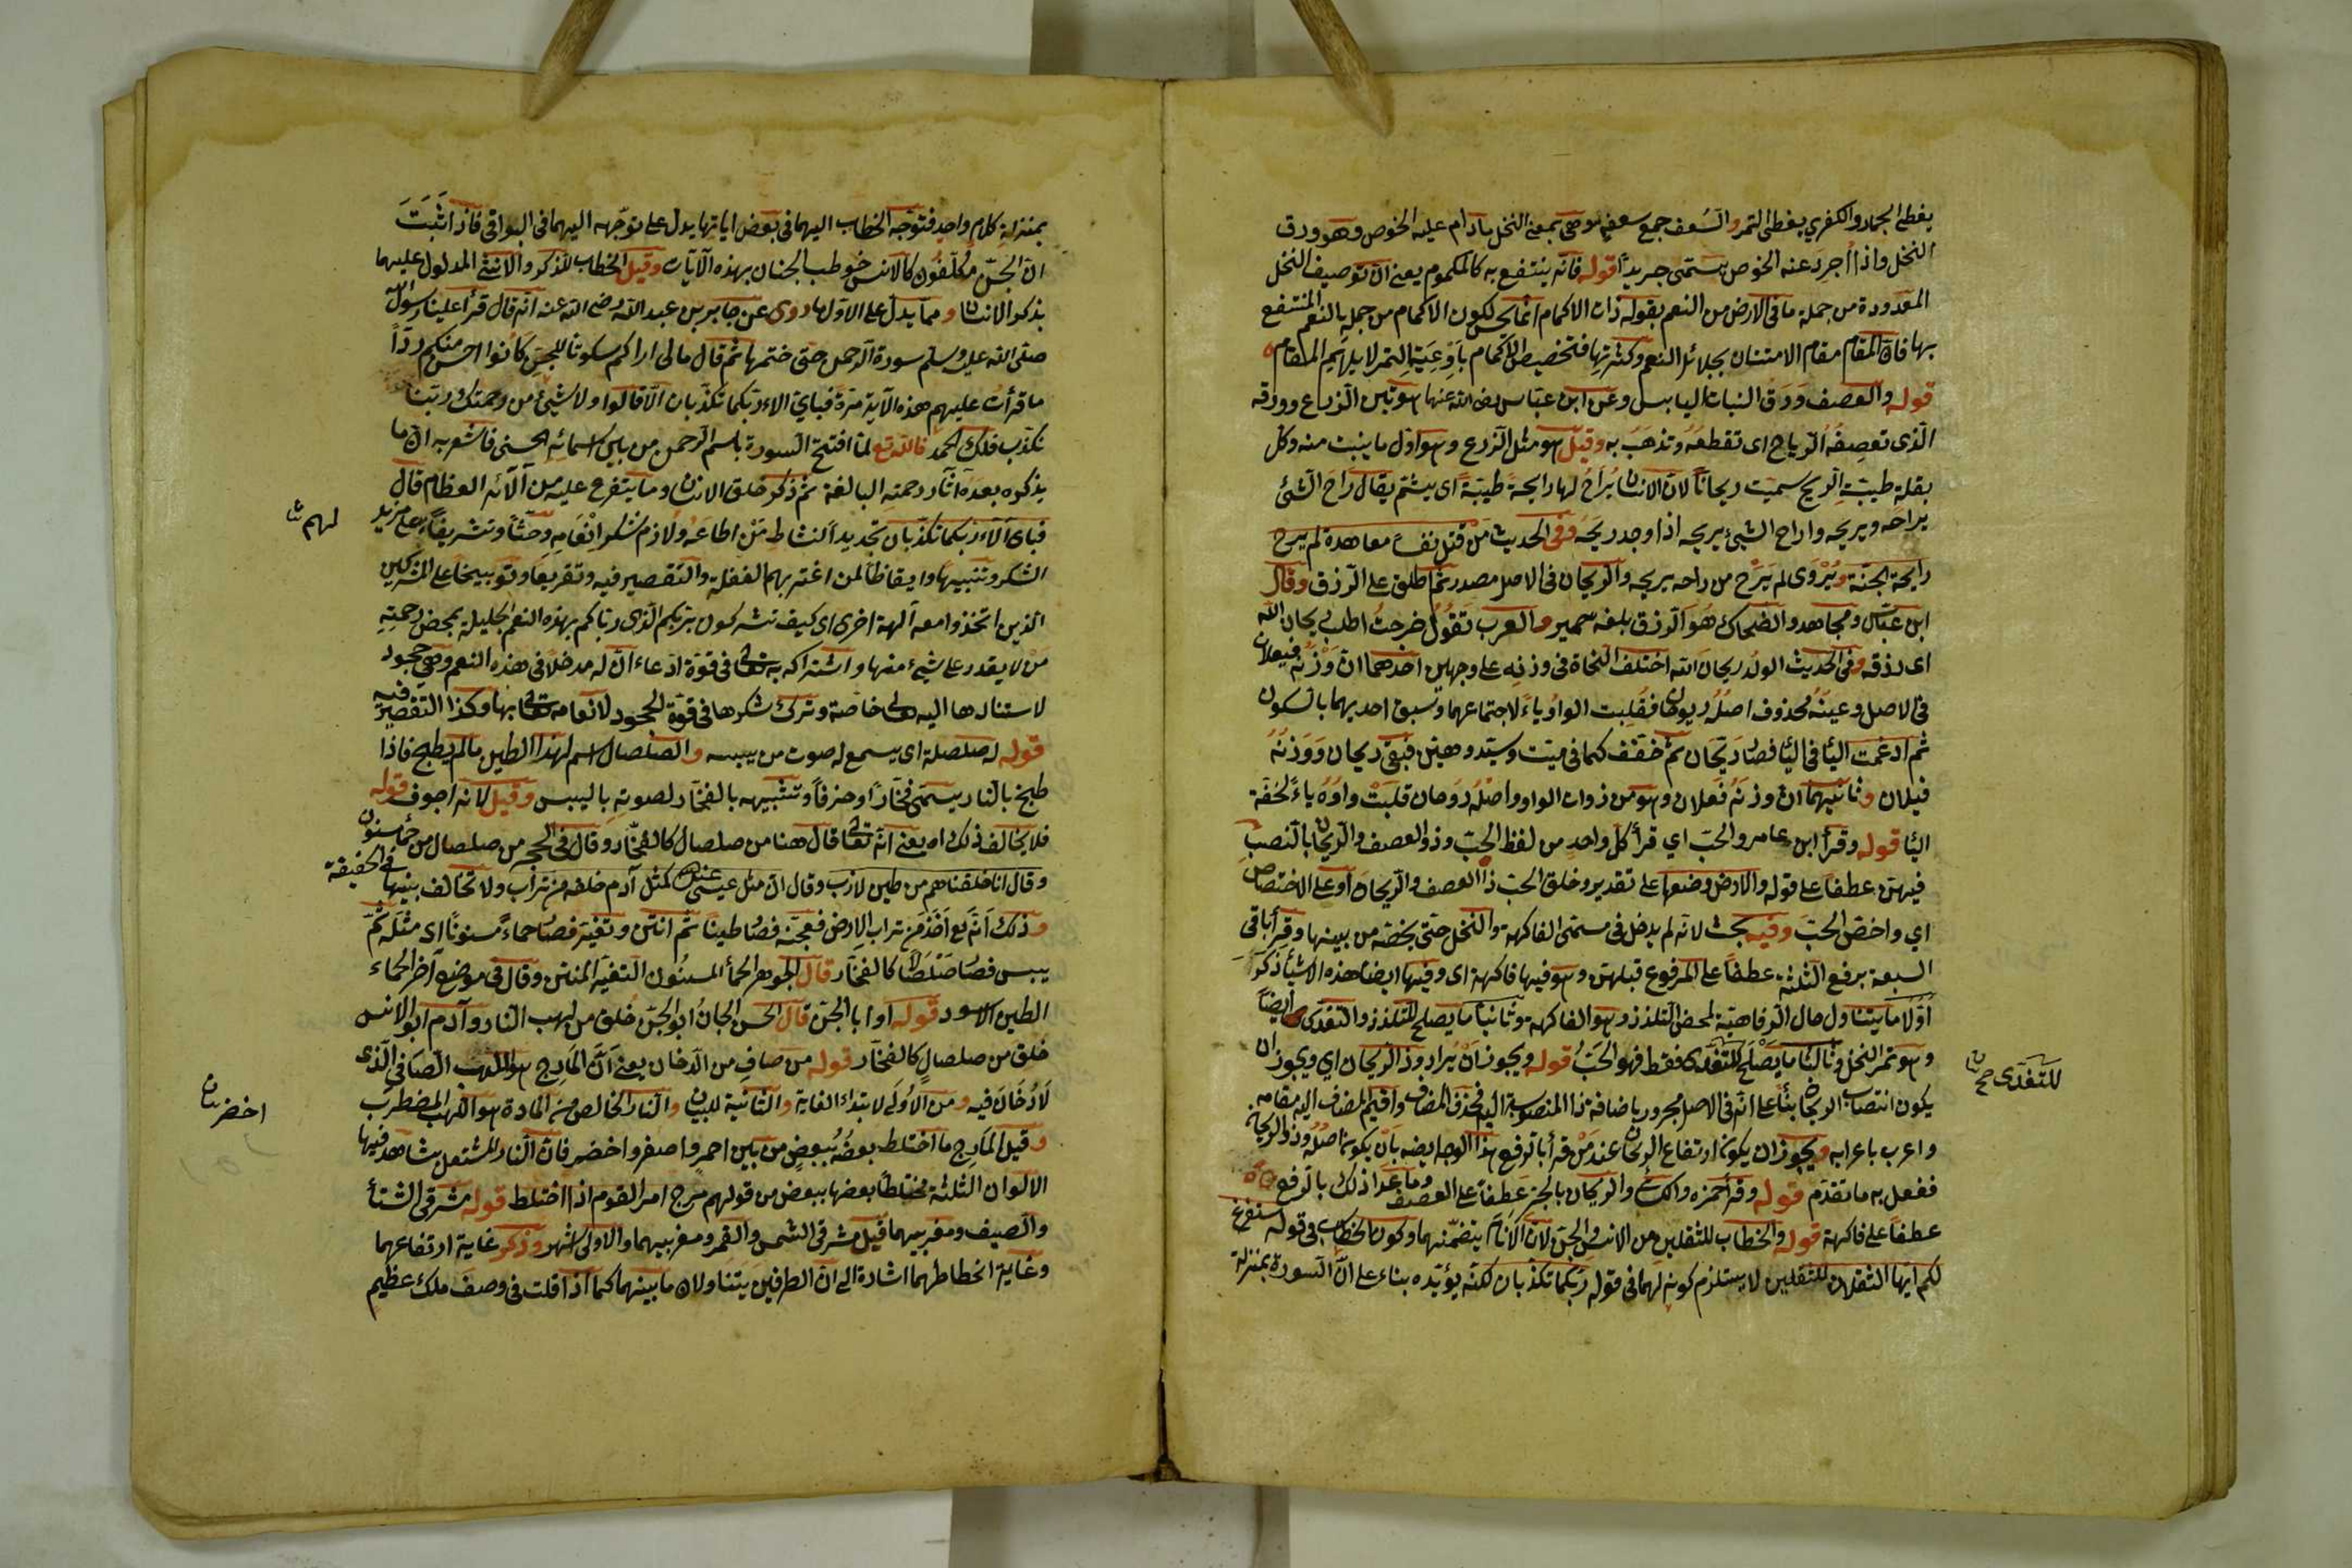 يغطى الجمار والكفرى يغطى التمر والسعف جمع سعفة وهى بمعنى النخل مادام عليه الخوص وهو ورق
النخل واذا اُجرد عنه الخوص يسمّى جريدا قوله فانه ينتفع به كالمكموم يعنى ان توصيف النخل
المعدودة من جملة ما فى الارض من النعم بقوله ذات الاكمام انما يحسن لكون الاكمام من جملة النعم المنتفع
بها فان المقام مقام الامتنان بجلائل النعم وكثرتها فتخصيص الاكمام باَوْعِيَةِ التمر لا يلايم المقام
قوله والعصف وَرَق النبات اليابس وعن ابن عباس رضى الله عنهما هو تبن الزرع وورقه
الّذى تعصِفُهُ الرياح اى تقطعهُ وتذهَبُ به وقيل هو مثل الزرع وهو اوّل ما ينبت منه وكل
بقلة طيبة الريح سميت ريحاناً لان الانسان يُرَاحُ لها رايحة طيبة اى يشتم يقال رَاحَ الشئ
يراحه ويريحه واراح الشئ يريحه اذا وجد ريحَه وفى الحديث من قتل نفسا معاهدة لم يرح
رايحة الجنّة ويُرْوى لم يَرَحْ من راحه يريحه والريحان فى الاصل مصدر ثم اطلق على الرزق وقال
ابن عبّاس ومجاهد والضحاك هُوَ الرزق بلغه حمير والعرب تَقُوُلُ خرجتُ اطلب ريحان الله
اى رزقه وفى الحديث الولد ريحان الله اختلف النحاة فى وزنه على وجهين احدهما انّ وَزْنَهُ فيعلان
فى الاصل وعينه محذوف اصلُهُ ريوحان فقُلِبت الواو ياءً لاجتماعهما وسبق احديهما بالسكون
ثم ادغمت اليا فى اليا فصار ريّحان ثم خفف كما فى ميت وسيّد وهيّن فبقى ريحان وَوَزنه
فيلان وثانيهما ان وزنه فعلان وهو من ذوات الواو واصله رَوْحان قلبَتْ واوُهُ ياءً لخفة
اليا قوله وقرأ ابن عامر والحبّ اى قرأ كل واحد من لفظ الحبّ وذو العصف والريحان بالنصبِ
فيهن عطفاً على قوله والارض وضعها على تقدير وخلق الحبّ ذا العصف والريحانَ او على الاختصاص
اي واخصّ الحبّ وفيه بحث لانه لم يدخل فى مسمى الفاكهة والنخل حتى يخصّه من بينها وقرأ باقى
السبعة برفع الثلثة عطفاً على المرفوع قبلهن وهو فيها فاكهة اى وفيها ايضا هذه الاشيأ ذكرَ
اَوّلاً ما يتناول حال الرفاهية لمحض التلذذ وهو الفاكهة وثانياً ما يصلح للتلذذ والتغدّى ايضاً
وهو ثمر النخل وثالثا ما يَصْلَح للتغدّى فقط فهو الحَبُّ قوله ويجوز اَنْ يُراد وذا الريحان اي ويجوز ان
للتغدّى صح
يكون انتصاب الريحان بنأً على انّه فى الاصل مجرور باضافة ذا المنصوبة اليه فحذف المضاف واقيم المضاف اليه مقامه
واعرب باعرابه ويجوز ان يكون ارتفاع الريحان عند مَنْ قرأ بالرفع بهذا الوجه ايضا بان يكون اصلُهُ وذو الريحان
ففعل به ما تقدّم قوله وقرأ حمزه والكسائى والريحان بالجرّ عطفاً على العصف وما عدا ذلك بالرفع
عطفاً على فاكهة قوله والخطاب للثقلين من الانس والجن لان الانام يتضمنهما وكون الخطاب فى قوله سنفرغ
لكم ايها الثقلان للثقلين لا يستلزم كونه لهما فى قوله ربكما تكذبان لكنّه يؤيّده بناء على انّ السورة بمنزلة
بمنزلة كلام واحد فتوجّه الخطاب اليهما فى بعض اياتها يدل على توجّهه اليهما فى البواقى فاذا ثَبَتَ
انّ الجنّ مُكلَّفُون كالانس خوطب الجنان بهذه الآيات وقيل الخطاب للذكر والانثى المدلول عليهما
بذكر الانسان ومما يدل على الاول ما روى عن جابر بن عبد الله رضى الله عنه انه قال قرأ علينا رسول الله
صلى الله عليه وسلم سورة الرحمن حتى ختمها ثم قال مالى اراكم سكوتا للجنّ كانوا احسن منكم ردّاً
ما قرأتُ عليهم هذه الآية مرة فبأي الاء ربكما تكذبان الّا قالوا ولا بشئ من نعمتك ربنا
نكذّب فلك الحمد فالله تع لمّا افتتح السورة باسم الرحمن من بين اسمائه الحسنى فاشعر به انّ ما
يذكره بعده آثار رحمته البالغة ثم ذكر خلق الانسان وما يتفرع عليه من آلآئه العظام قال
فباى آلآء ربكما تكذّبان تجديداً لنشاط مَنْ اطاعهُ ولازم شكر اِنْعَامِهِ وحثّاً وتشريفاً لهم على مزيد
لهم
الشكر وتنبيها وايقاظا لمن اغتر بهم الغفلة والتقصير فيه وتقريعا وتوبيخا على المشركين
الّذين اتخذوا معه آلهة اخرى اى كيف تشركون بربكم الّذى ربّاكم بهذه النعم الجليلة بمحض رحمتِهِ
مَنْ لا يقدر على شئ منها واشتراكه به تعالى فى قوّة ادّعاء انّ له مدخلاً فى هذه النعم وهى جحود
لاستنادها اليه تعالى خاصة وترك شكرها فى قوّة الجحود لانعامه تعالى بها وكذا التقصير فيه
قوله له صلصلة اى يسمع له صوت من يبسه والصلصال اسم لهذا الطين ما لم يطبخ فاذا
طبخ بالنار يسمّى فخّاراً وخزفاً وتشبيهه بالفخار لصوته باليبس وقيل لانه اجوف قوله
فلا يخالف ذلك اه يعنى انّه تعالى قال ههنا من صلصال كالفخّار وقال فى الحجر من صلصال من حمأ مسنون
وقال انا خلقناهم من طين لازب وقال ان مثل عيسى عند الله كمثل آدم خلقه من تراب ولا تخالف بينها فى الحقيقة
وذلك اَنّه تع اَخَذَ من تراب الارض فعجنه فصار طيناً ثم انتن وتغيّر فصار حماءً مسنوناً اى مثله ثمّ
يبس فصار صَلْصَالاً كالفخّار قال الجوهر الحمأ المسنُون التغيّر المنتن وقال فى موضع آخر الحماء
الطين الاسود قوله او ابا الجنّ قال الحسن الجانُ ابو الجنّ خُلق من لهب النّار وآدم ابو الانس
خلق من صلصالٍ كالفخّار قوله من صافٍ من الدّخان يعنى اَنَّ المارج هو اللهب الصافى الّذى
لَا دُخَانَ فيه ومن الاُولَى لابتداء الغاية والثانية للبيان والنار الخالص من المادة هو اللهب المضطرب
وقيل المارج ما اختلط بعضُهُ ببعضٍ من بين احمر واصفر واخضر فان النار المشتعل يشاهد فيها
اخضر
الالوان الثلثة مختلطاً بعضها ببعض من قولهم مرج امر القوم اذا اختلط قوله مشرقى الشتأ
والصيف ومغربيهما قيل مشرقى الشمس والقمر ومغربيهما والاول اشهر وذكر غاية ارتفاعهما
وغاية انحطاطهما اشارة الى انّ الطرفين يتناولان ما بينهما كما اذا قلت فى وصف ملك عظيم